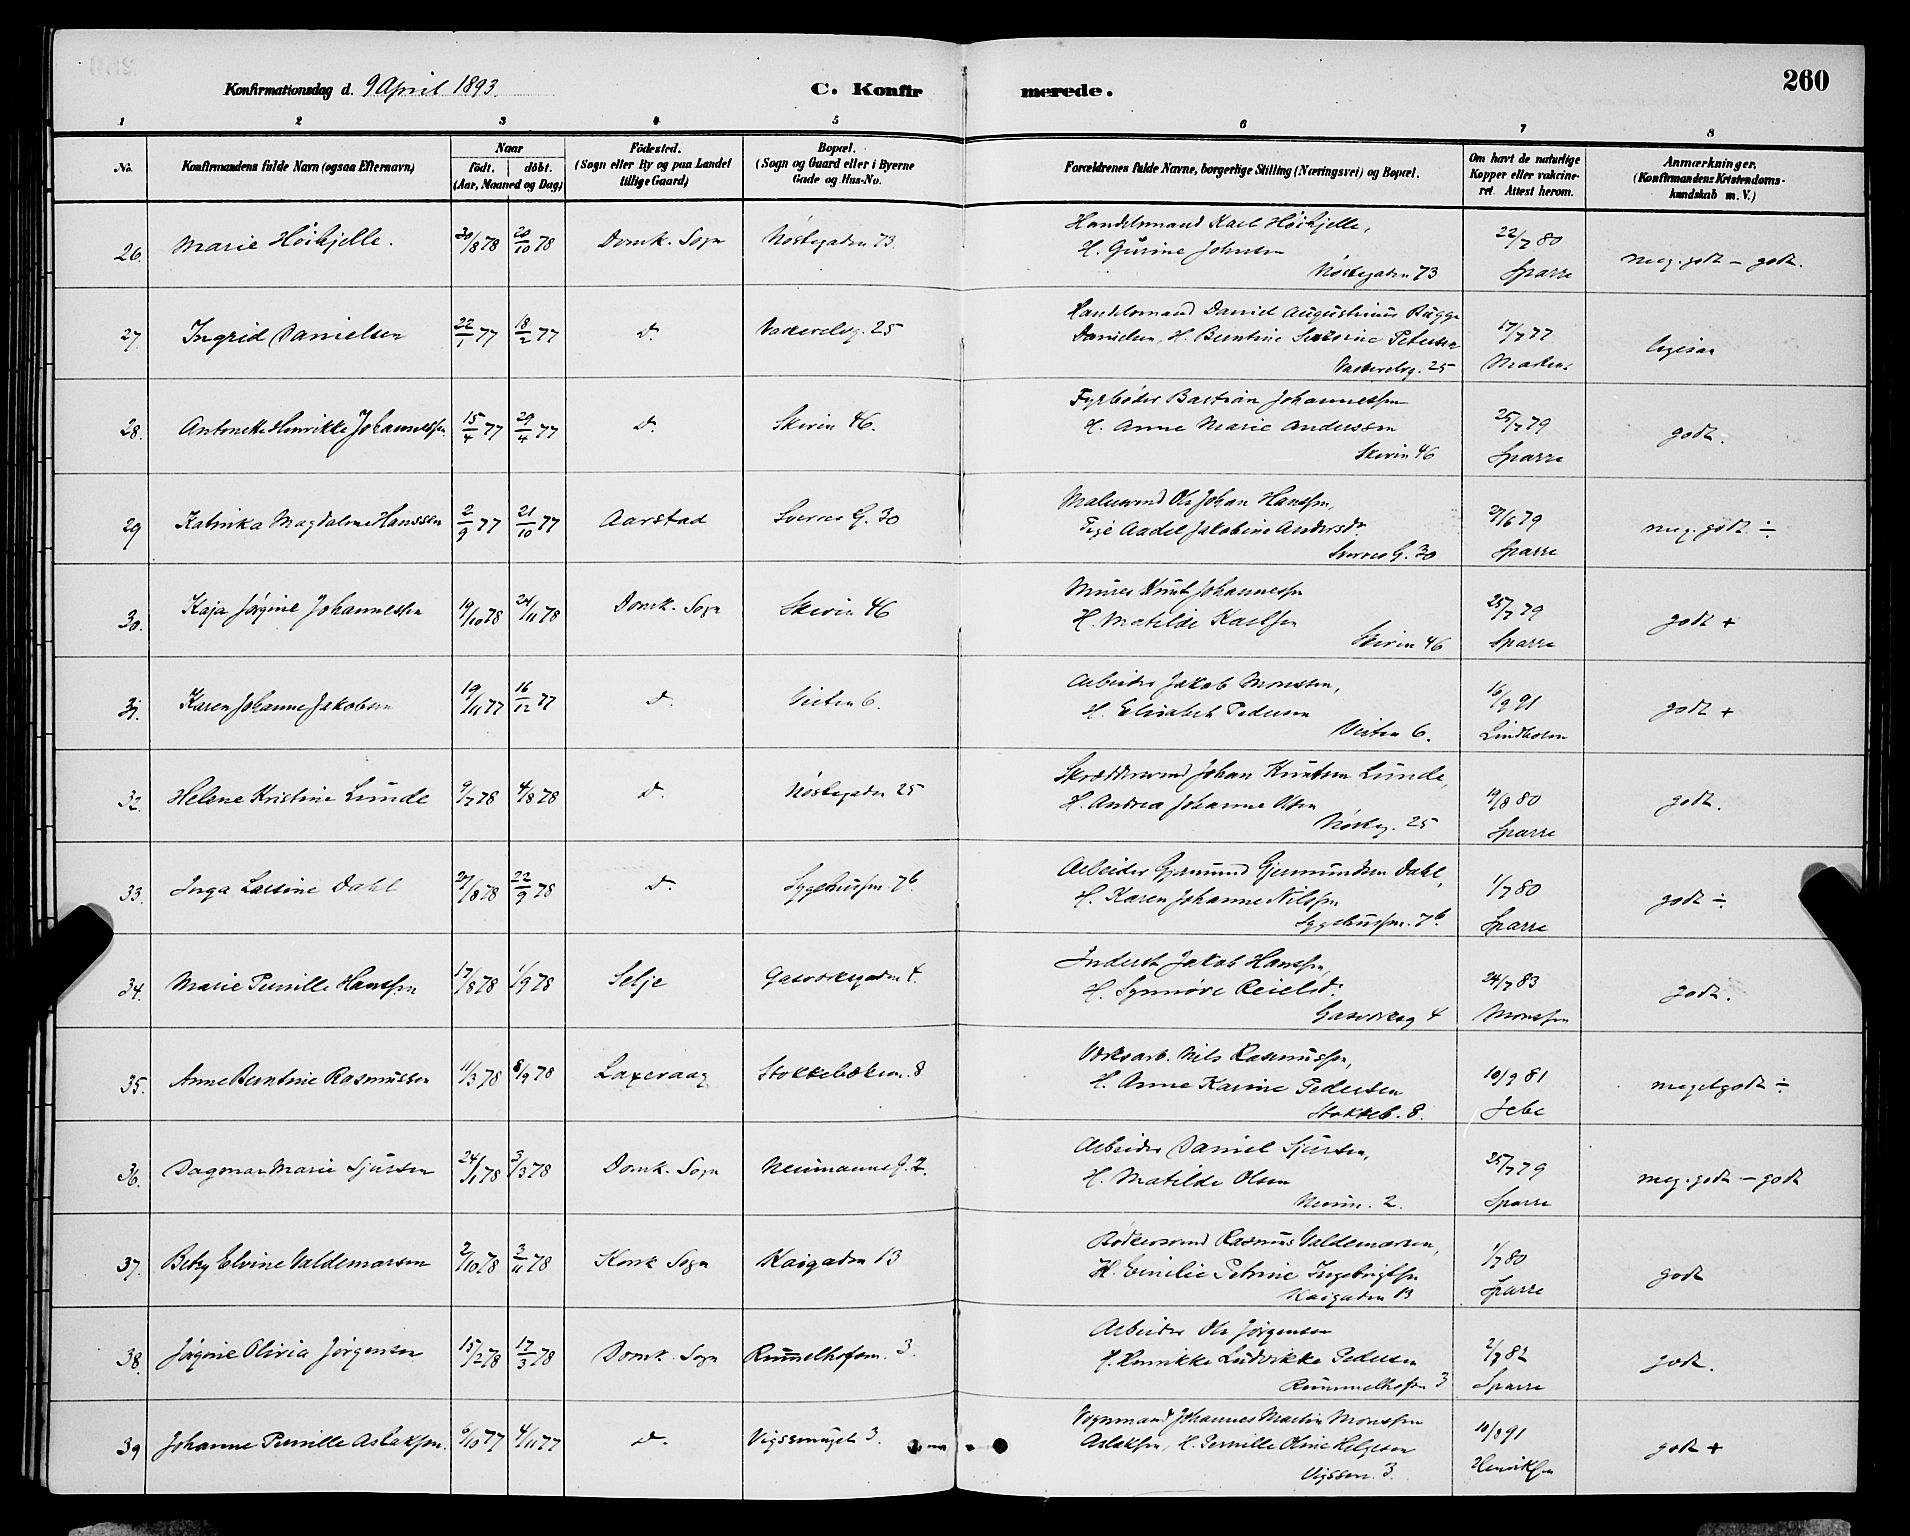 260
Konfirmationsdag d. 9 April 1893.
C. Konfirmerede.
1 2 3 4 5 6 7 8
No. Konfirmandens fulde Navn (ogsaa Efternavn) Naar født. døbt. (Aar, Maaned og Dag) Fødested. (Sogn eller By og paa Landet tillige Gaard) Bopæl. (Sogn og Gaard eller i Byerne Gade og Hus-No. Forældrenes fulde Navne, borgerlige Stilling (Næringsvei) og Bopæl. Om havt de naturlige Kopper eller vakcineret. Attest herom. Anmærkninger. (Konfirmandens Kristendomskundskab m. V.)
26. Marie Höikjelle. 30/8 78 20/10 78 Domk. Sogn Nöstegaden 73. Handelsmand Karl Höikjelle, H. Gurine Johnsen Nöstegaden 73 22/7 80 Sparre meg. godt - godt.
27. Ingrid Danielsen 22/1 77 18/2 77 D. 25 Handelsmand Daniel Augustinus Bugge Danielsen, H. Berntine Severine Petersen 25 17/7 77 ligesaa
28. Antonette Henrikke Johannessen 15/4 77 29/4 77 D. Skivin 46. Fyrböder Bastian Johannessen H. Anne Marie Anderssen Skivin 46 25/7 79 Sparre godt.
29 Katinka Magdalene Hanssen 2/9 77 21/10 77 Aarstad Sverres G. 30 Malersvend Ole Johan Hanssen, Pige Aadel Jakobine Andersdr. Sverres G. 30 27/6 79 Sparre meg. godt ÷
30. Kaja Jörgine Johannessen 19/10 78 24/11 78 Domk. Sogn Skivin 46 Murer Knut Johannessen H. Matilde Karlsen Skivin 46 25/7 79 Sparre godt +
31. Karen Johanne Jakobsen 19/11 77 16/12 77 D. Veiten 6. Arbeider Jakob Monssen, H. Elisabet Pedersen Veiten 6. 16/9 91 Lindholm godt +
32. Helene Kristine Lunde 9/7 78 4/8 78 D. Nöstegaden 25 Skræddersvend Johan Knutsen Lunde, H. Andrea Johanne Olsen Nösteg. 25 19/8 80 Sparre godt.
33. Inga Larsine Dahl 27/8 78 22/9 78 D. Sygehussm. 7b Arbeider Gjermund Gjermundsen Dahl, H. Karen Johanne Nilssen Sygehussm. 7b. 1/7 80 Sparre godt ÷
34. Marie Pernille Hanssen 17/8 78 1/9 78 Selje Gasverksgaden 4. Inderst Jakob Hanssen, H. Synnöve Reielsd. Gasverksg 4 24/7 83 Monssen godt.
35. Anne Berntine Rasmussen 11/3 78 8/9 78 Laxevaag Stokkebekken. 8 Verksarb. Nils Rasmussen, H. Anne Karine Pedersen Stokkeb. 8. 10/9 81 Jebe megetgodt ÷
36. Dagmar Marie Sjursen 24/1 78 3/3 78 Domk. Sogn Neumanns G. 2. Arbeider Daniel Sjursen, H. Matilde Olsen Neum. 2. 25/7 79 Sparre meg. godt - godt
37. Betzy Elvine Valdemarsen 2/10 78 3/11 78 Korsk. Sogn Kaigaden 13 Bödkersvend Rasmus Valdemarsen, H. Emilie Petrine Ingebrigtsen Kaigaden 13 1/7 80 Sparre godt
38. Jörgine Olivia Jörgensen 15/2 78 17/3 78 Domk. Sogn Rummelhofsm. 3. Arbeider Ole Jörgensen H. Henrikke Ludvikke Pedersen Rummelhofsm 3 2/7 82 Sparre godt.
39 Johanne Pernille Aslaksen. 6/10 77 4/11 77 D. 3. Vognmand Johannes Martin Monssen Aslaksen, H. Pernille Oline Helgesen 3. 10/8 91 Henriksen godt +